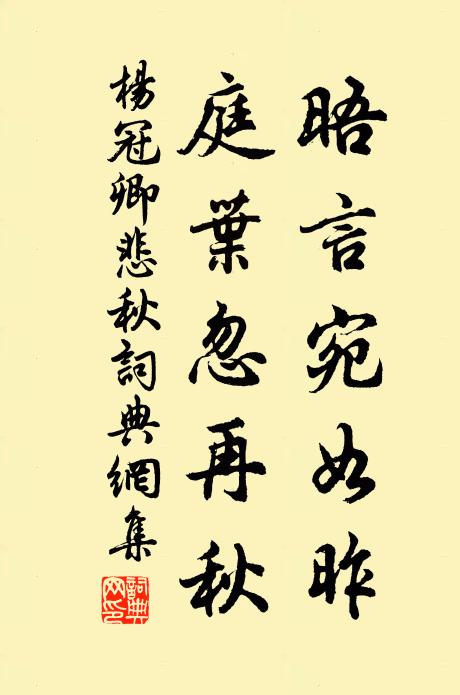 晤言宛如昨
庭葉忽再秋
楊冠卿悲秋詞典網集
詞典網印